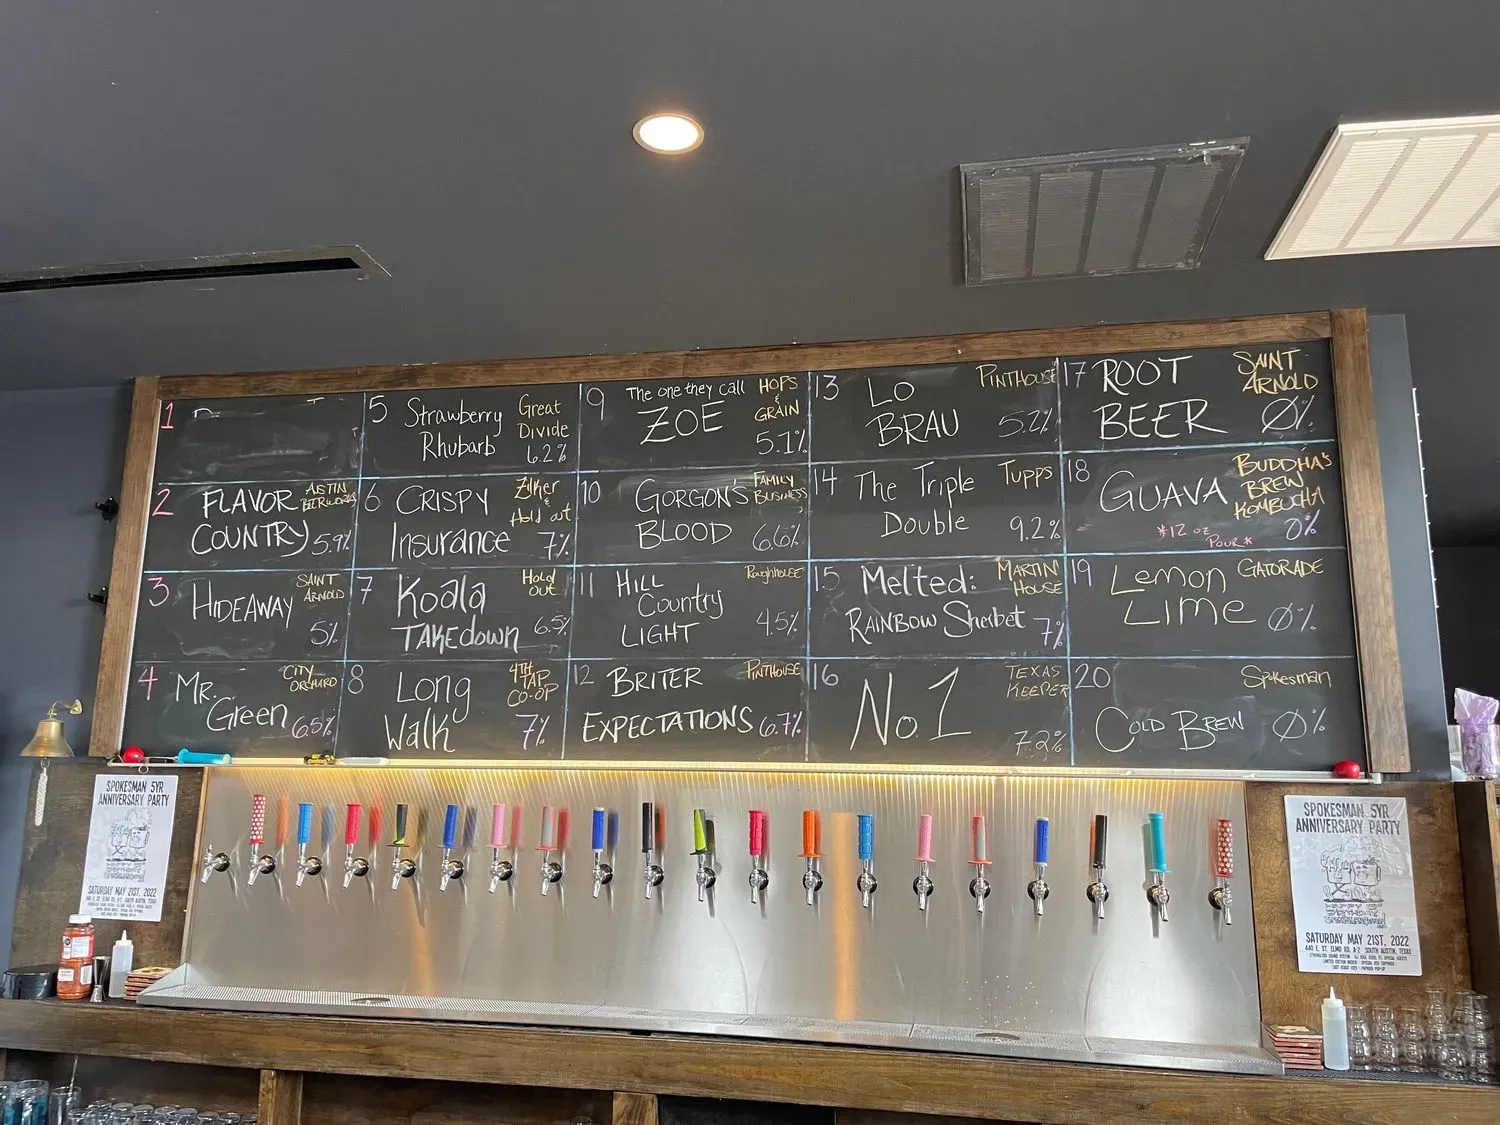 1
2
FLAVOR
COUNTRY
AUSTIN
BEERWORKS
5.9%
3
HIDEAWAY
SAINT
ARNOLD
5%
4
MR.
Green
CITY
ORCHARD
6.5%
5
Strawberry
Rhubarb
Great
Divide
6.2%
6
CRISPY
Insurance
Zilker
&
Hold out
7%
7
Koala
TAKEdown
Hold
OUT
6.5%
8
Long
Walk
4TH
TAP
CO-OP
7%
9
The one they call
ZOE
HOPS
&
GRAIN
5.1%
10
GORGON'S
BLOOD
FAMILY
BUSINESS
6.6%
11
HILL
Country
LIGHT
Roughhouse
4.5%
12
BRITER
EXPECTATIONS
PINTHOUSE
6.7%
13
LO
BRAU
PINTHOUSE
5.2%
14
The Triple
Double
Tupps
9.2%
15
Melted:
RAINBOW Sherbet
MARTIN
HOUSE
7%
16
No. 1
TEXAS
KEEPER
7.2%
17
ROOT
BEER
SAINT
ARNOLD
0%
18
GUAVA
BUDDHA'S
BREW
KOMBUCHA
*12 oz
POUR*
0%
19
Lemon
LIME
GATORADE
0%
20
COLD BREW
Spokesman
0%
SPOKESMAN 5YR
ANNIVERSARY PARTY
SATURDAY MAY 21ST, 2022
440 E. ST. ELMO RD. A-2 SOUTH AUSTIN, TEXAS
SPOKESMAN 5YR
ANNIVERSARY PARTY
SATURDAY MAY 21ST, 2022
440 E. ST. ELMO RD. A-2 SOUTH AUSTIN, TEXAS